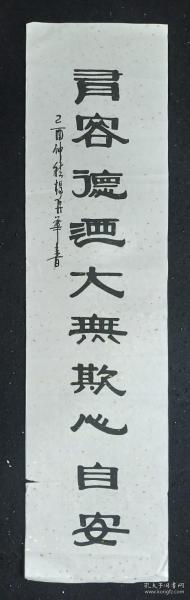 有容德迺大無欺心自安
乙酉仲秋楊長華書
孔夫子旧书网